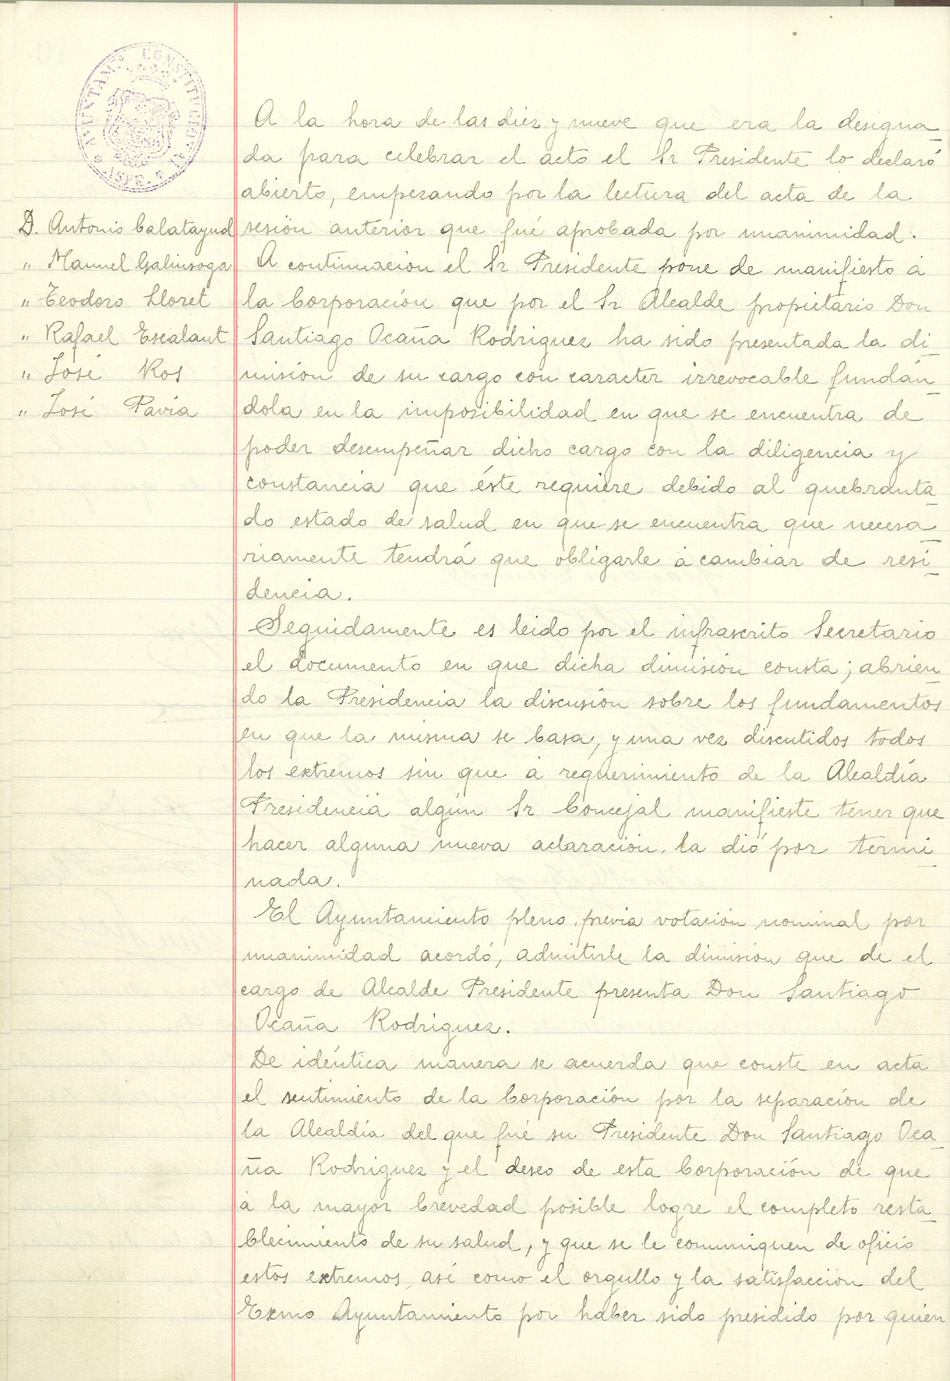 AYUNTAMº CONSTITUCIONAL
ASPE
D. Antonio Calatayud
" Manuel Galinsoga
" Teodoro Lloret
" Rafael Escalant
" José Ros
" José Pavía
A la hora de las diez y nueve que era la designa_
da para celebrar el acto el Sr Presidente lo declaró
abierto, empezando por la lectura del acta de la
sesión anterior que fué aprobada por unanimidad.
A continuación el Sr Presidente pone de manifiesto á
la Corporación que por el Sr Alcalde propietario Don
Santiago Ocaña Rodriguez ha sido presentada la di_
misión de su cargo con caracter irrevocable fundán_
dola en la imposibilidad en que se encuentra de
poder desempeñar dicho cargo con la diligencia y
constancia que éste requiere debido al quebranta_
do estado de salud en que se encuentra que necesa_
riamente tendrá que obligarle á cambiar de resi_
dencia.
Seguidamente es leido por el infrascrito Secretario
el documento en que dicha dimisión consta; abrien_
do la Presidencia la discusión sobre los fundamentos
en que la misma se basa, y una vez discutidos todos
los extremos sin que á requerimiento de la Alcaldía
Presidencia algún Sr Concejal manifieste tener que
hacer alguna nueva aclaración, la dió por termi_
nada.
El Ayuntamiento pleno, previa votación nominal por
unanimidad acordó, admitirle la dimisión que de el
cargo de Alcalde Presidente presenta Don Santiago
Ocaña Rodriguez.
De idéntica manera se acuerda que conste en acta
el sentimiento de la Corporación por la separación de
la Alcaldía del que fué su Presidente Don Santiago Oca_
ña Rodriguez y el deseo de esta Corporación de que
á la mayor brevedad posible logre el completo resta_
blecimiento de su salud, y que se le comuniquen de oficio
estos extremos, así como el orgullo y la satisfacción del
Exmo Ayuntamiento por haber sido presidido por quien